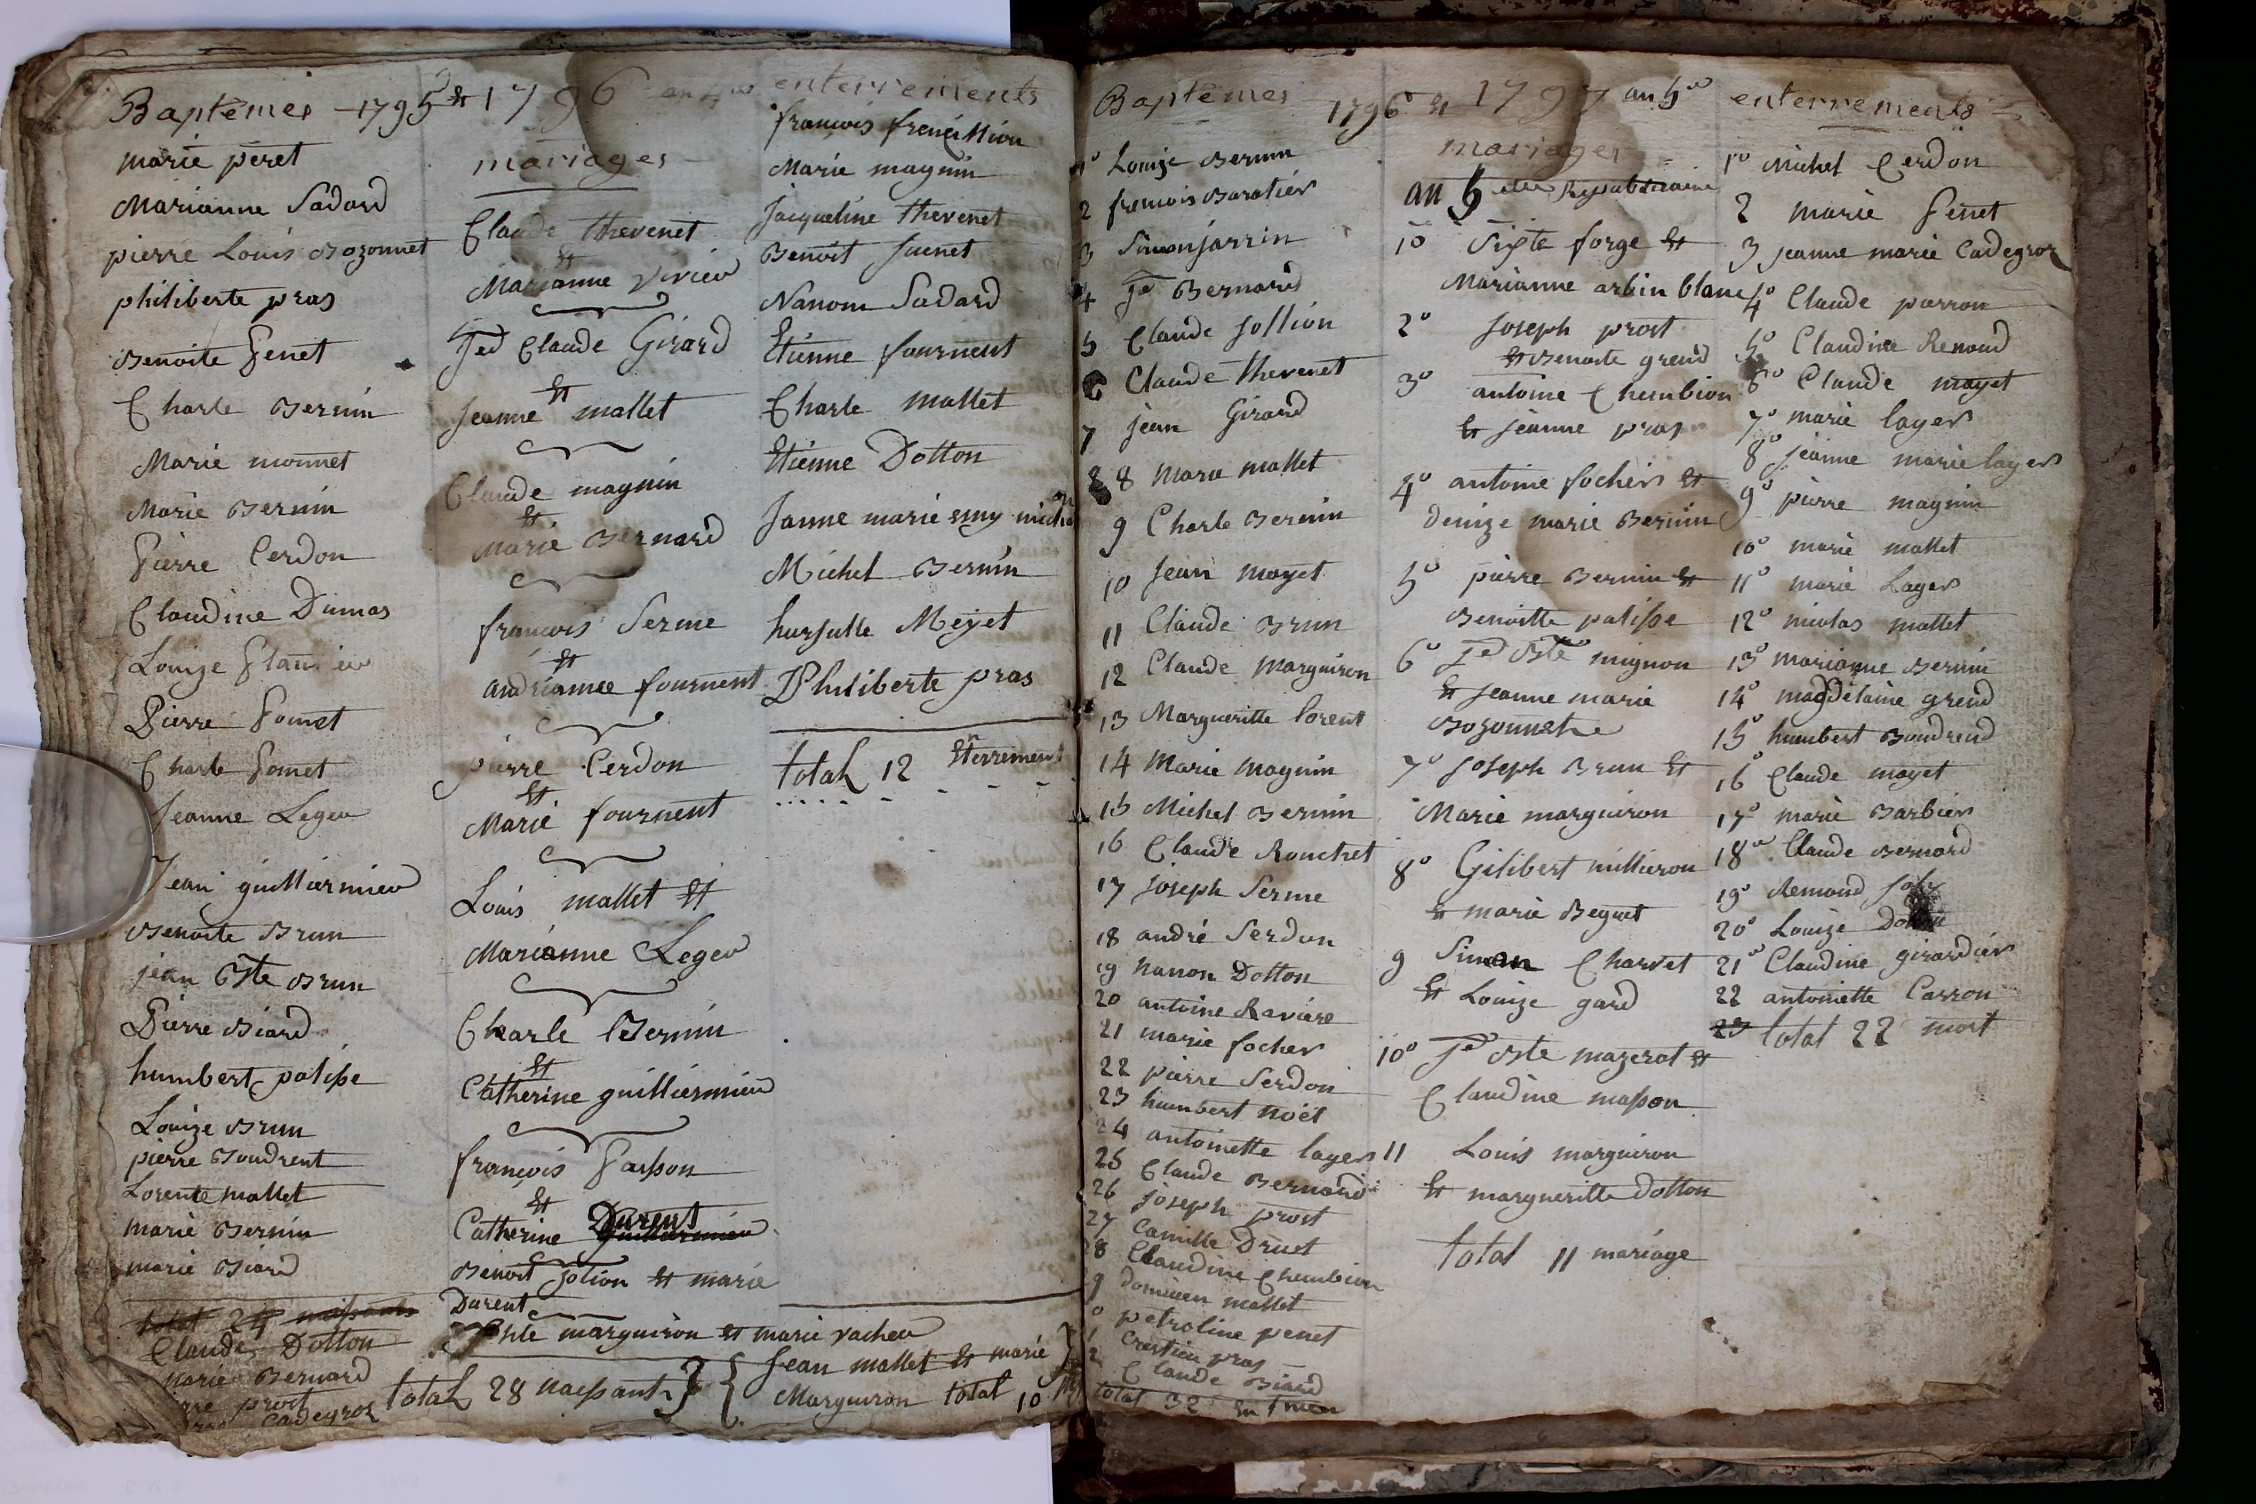 Baptêmes 1795 et 1796 an 4
marie peret
Marianne Sadard
pierre Louis Bozonnet
philiberte pras
Benoite Genet
Charle Bernin
Marie monnet
Marie Bernin
Pierre Cerdon
Claudine Dumas
Louize
Pierre
Charle
Jeanne Leger
Jean guilliermier
Benoite Brun
jean Bte Brun
Pierre Biard
humbert palisse
Louize Brun
pierre Boudrent
Lorente mallet
marie Bernin
marie Biard
total 24 naissants
Claude Dotton
marie Bernard
prost
Cadegros
total 28 naissant
mariages
Claude thevenet
et
Marianne Virieu
jed Claude Girard
et
jeanne mallet
Claude magnin
et
Marie Bernard
francois Serme
et
andrianne fournent
pierre Cerdon
et
Marie fournent
Louis mallet et
Marianne Leger
Charle Bernin
et
Catherine guilliermier
françois
et
Catherine Durent
Benoit jolion et marie
Durent
Bte marguiron et marie vacheu
Jean mallet et marie
Marguiron total 10
enterrements
francois
Marie magnin
Jacqueline thevenet
Benoit
Nanon Sadard
Etienne fournent
Charle mallet
Etienne Dotton
Janne marie
Michel Bernin
hursulle Meyet
Philiberte pras
total 12 Enterrement
Baptêmes 1796 et 1797 an 5
1º Louize Bernin
2 francois Baratier
3 Simon jarrin
4 jd Bernard
5 Claude jollion
6 Claude thevenet
7 jean Girard
8 8 Marie mallet
9 Charle Bernin
10 jean mayet
11 Claude Brun
12 Claude Marguiron
13 Margueritte lorent
14 Marie magnin
15 Michel Bernin
16 Claude Ronchet
17 joseph Serme
18 andré Serdon
19 nanon Dotton
20 antoine Raviere
21 marie focher
22 pierre Serdon
23 humbert noël
24 antoinette layer
25 Claude Bernard
26 joseph prost
27 Camille Druet
28 Claudine Chembion
9 mallet
0 petroline penet
1 pras
2 Claude Biard
total 32
mariages
an 5eme Republicaine
1º Sixte forge et
Marianne arbin blanc
2º joseph prost
et Benoite grend
3º antoine Chembion
et jeanne pras
4º antoine focher et
denize marie Bernin
5º pierre Bernin et
Benoitte palisse
6º jd Bte mignon
et jeanne marie
Bozonnet
7º joseph Brun et
Marie marguiron
8º Gilibert millieron
et marie Beguet
9 Simon Charvet
et Louize gard
10º jd Bte mazerat et
Claudine masson
11 Louis marguiron
et margueritte Dotton
total 11 mariage
enterrements
1º Michel Cerdon
2 marie Genet
3 jeanne marie Cadegros
4º Claude parron
5º Claudine Renoud
6º Claude mayet
7º marie layer
8º jeanne marie layer
9º pierre magnin
10º marie mallet
11º marie Layer
12º nicolas mallet
13º marianne Bernin
14º magdelaine grend
15º humbert Boudrend
16º Claude mayet
17º marie Barbier
18º Claude Bernard
19º Remond
20º Louize Dotton
21º Claudine girardier
22 antoinette Carron
23 total 22 mort